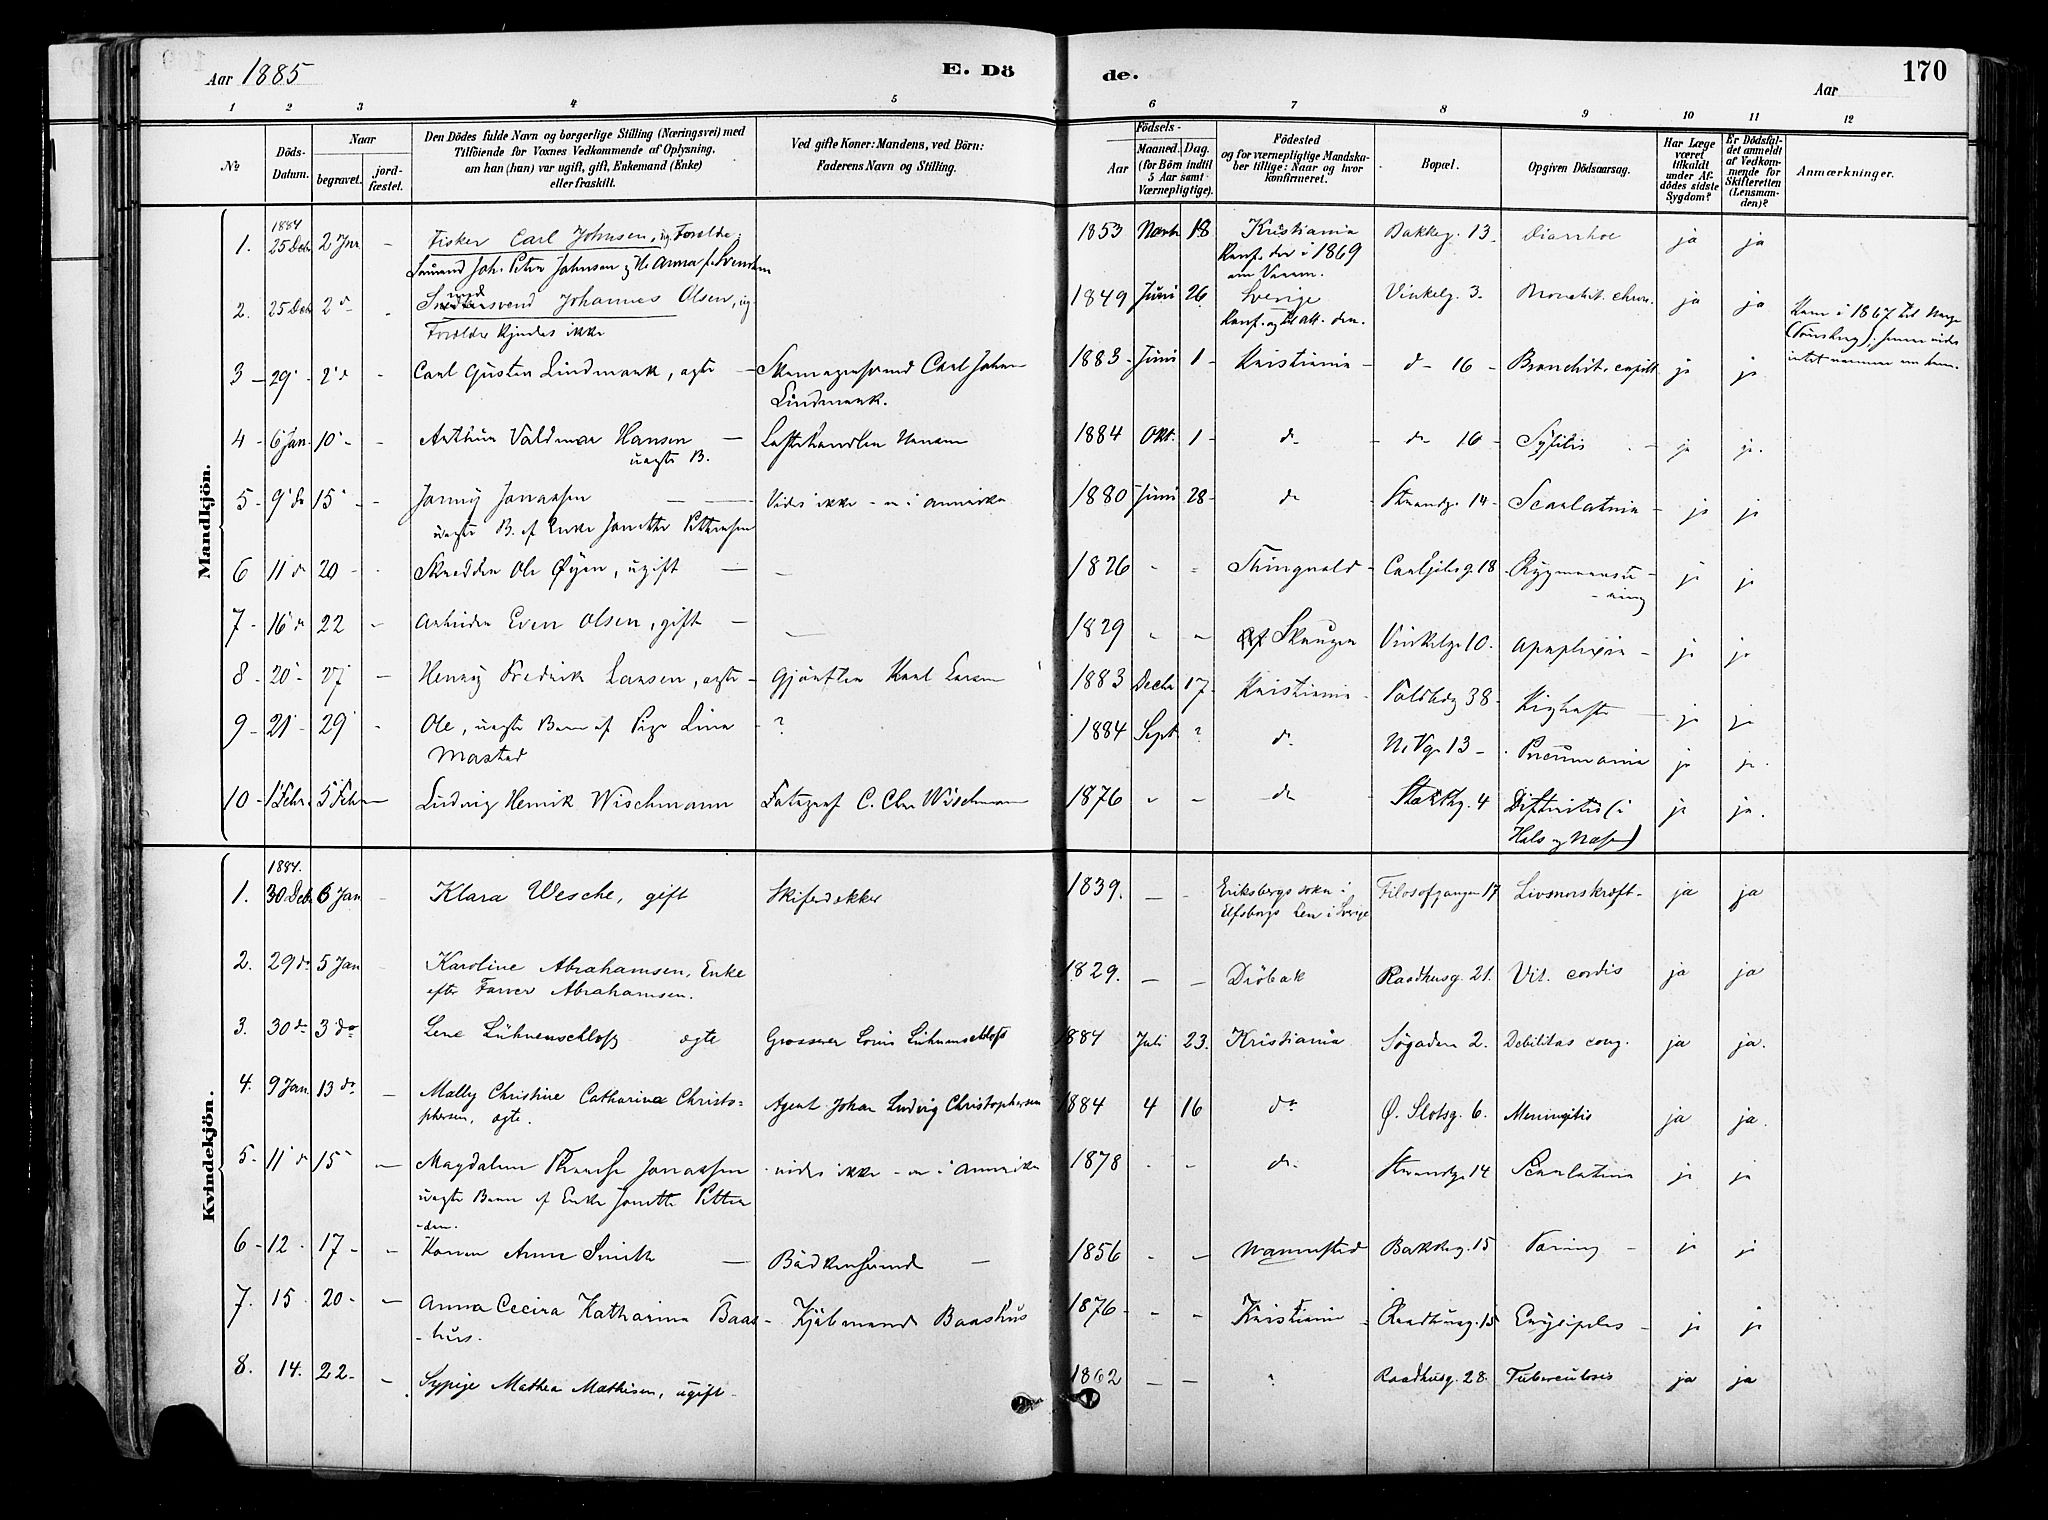 Aar 1885
E. Dö
de.
170
Aar
1 2 3 4 5 6 7 8 9 10 11 12
No
Döds-Datum.
Naar
begravet.
jord-fæstet.
Den Dödes fulde Navn og borgerlige Stilling (Næringsvei) med
Tilföiende for Voxnes Vedkommende af Oplysning,
om han (hun) var ugift, gift, Enkemand (Enke)
eller fraskilt.
Ved gifte Koner: Mandens, ved Börn:
Faderens Navn og Stilling.
Födsels-
Aar
Maaned. Dag.
(for Börn indtil
5 Aar samt
Værnepligtige).
Födested
og for værnepligtige Mandska-
ber tillige: Naar og hvor
konfirmeret.
Bopæl.
Opgiven Dödsaarsag.
Har Læge
været
tilkaldt
under Af-
dödes sidste
Sygdom?
Er Dödsfal-
det anmeldt
af Vedkom-
mende for
Skifteretten
(Lensman-
den)?
Anmærkninger.
Mandkjön.
1884
1. 25 Deb. 2 Jnr - Fisker Carl Johnsen, ug Foreldre: 1853 Novb. 18 Kristiania Bakkeg. 13. Diarrhoe ja ja
Sömand Joh. Peter Johnsen og He Anna f. Svendsen Konf. der i 1869
2. 25 Deb 2 do Johannes Olsen, ug. 1849 Juni 26 Sverige Vinkelg. 3. Bronchit. chron. ja ja Kom i 1867 til Norge
Foreldre kjendes ikke Konf. og (Tönsberg).
3 - 29 2 d - Carl Gustav Lindmark, ægte - Skomagersvend Carl Johan 1883 - Juni 1 - Kristiania - d - 16 - Bronchit. capill. ja ja
Lindmark.
4 - 6 Jan. 10 - - Arthur Valdmar Hansen - 1884 Okt. 1 - do - do 16 - Syfilis - ja ja.
uægte B.
5 - 9 do 15 - Jonny Jonassen - Vides ikke - er i Amerika 1880 - Juni 28 - do - Strandg. 14 - Scarlatina - ja ja
uægte B. af Enke Jonette Pettersen
6 11 d 20 - - Skrædder Ole Øyen, ugift - - 1826 - - Thingvold - Carljohsg. 18.
7 - 16 d 22 - Arbeider Even Olsen, gift - - 1829 - - Af Skaugen Vinkelg. 10. Apoplexia - ja ja
8 - 20 - 27 - Henry Fredrik Larsen, ægte - Gjörtler Karl Larsen 1883 Decbr 17 - Kristiania - Voldtg 38 - Kighoste - ja ja
9 - 21 - 29 - Ole, uægte Barn af Pige Lina - ? 1884 Sept ? do N. Vg. 13 - Pneumonia ja ja.
Mastad
10 - 1 Febr. 5 Febr - Ludvig Henrik Wischmann Fotograf C. Chr Wischmann 1876 - - do - 4 Difteritis (i ja ja.
Hals og Næse)
Kvindekjön.
1884.
1. 30. Deb. 6 Jan - Klara Wesche, gift Skiferdækker 1839. - - Eriksbergs sokn i Filosofgangen 17 Livmorskræft - ja ja
Elfsborgs Len i Sverige
2. 29 do 5 Jan Karoline Abrahamsen, Enke 1829. - - Dröbak Raadhusg. 21. Vit. cordis ja ja
efter Farver Abrahamsen.
3. 30 do 3 do Lene Lühnenschloss ægte Grosserer Louis Lühnenschloss 1884 Juli 23. Kristiania Søgaden 2. Debilitas cong. ja ja.
4. 9 Jan. 13 do - Mally Christine Catharina Christo- Agent Johan Ludvig Christophersen 1884 4 16 do Ø. Slotsg. 6. Meningitis ja ja.
phersen, ægte.
5. 11 d 15 - Magdalene Therese Jonassen - vides ikke - er i Amerika 1878 - - do - Strandg. 14 Scarlatina ja ja
uægte Barn af Enke Jonette Petter-
- sen.
6 - 12 - 17 - - Karen Anne Smith - Bödkersvend - 1856 - - Bakkeg. 15 - ja ja
7. 15 20 - - Anna Cecira Katharina Baas- Kjöbmand Baashus 1876 - - - Kristiania - Raadhusg. 15 Erysipelas - ja ja
- hus.
8. 14. 22 - - Sypige Mathea Mathisen, ugift - 1862 - - " Raadhusg. 28. Tuberculosis ja ja